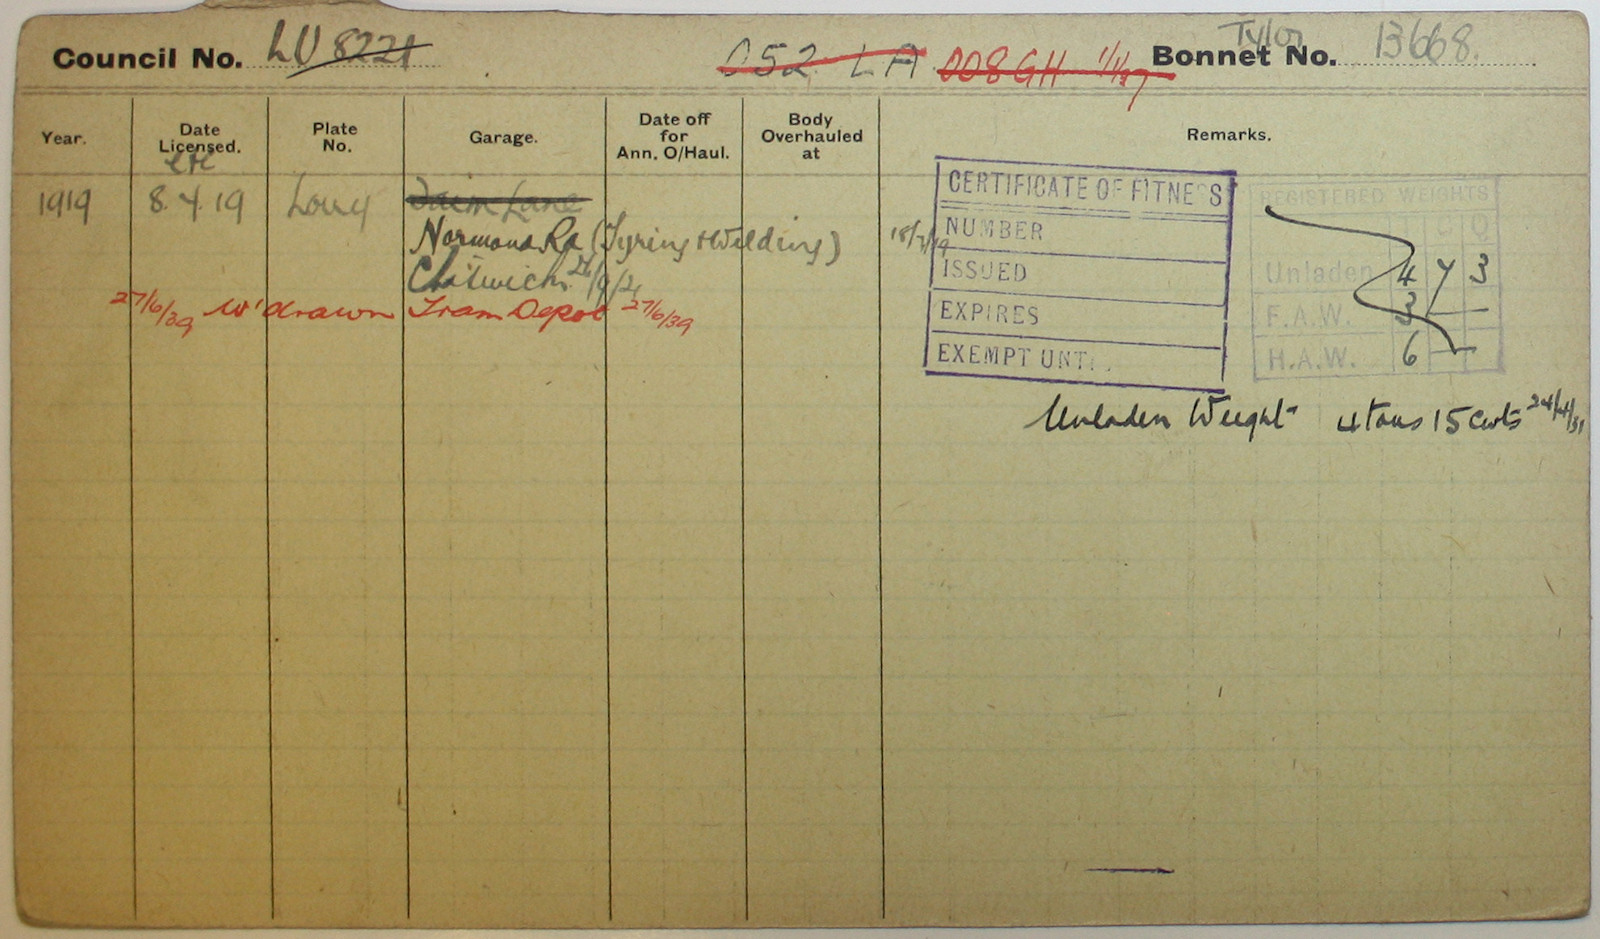 Council No. LU 8221 052 LA 008GH 1/1/37 Bonnet No. Tylor 13668.
Year. Date Licensed. Plate No. Garage. Date off for Ann. O/Haul. Body Overhauled at Remarks.
1919 8.4.19 Lorry Lane
Normand Rd (Tyring & Welding) 18/7/19
Chiswick 26/9/21
27/6/39 W'drawn Tram Depot 27/6/39
CERTIFICATE OF FITNESS
NUMBER
ISSUED
EXPIRES
EXEMPT UNT
REGISTERED WEIGHTS
Q
Unladen 4 7 3
F.A.W. 3 — —
H.A.W. 6 — —
Unladen Weight 4 tons 15 cwts 24/4/31